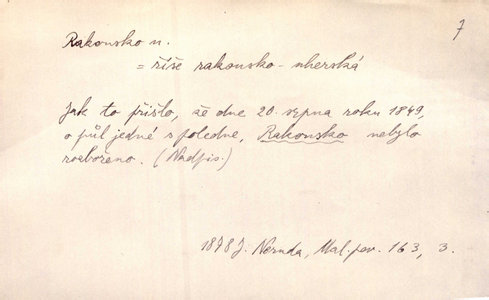 7
Rakousko n.
= říše rakousko-uherská
Jak to přišlo, že dne 20. srpna roku 1849,
o půl jedné s poledne, Rakousko nebylo
rozbořeno. (Nadpis.)
1878 J. Neruda, Mal. pov. 163, 3.